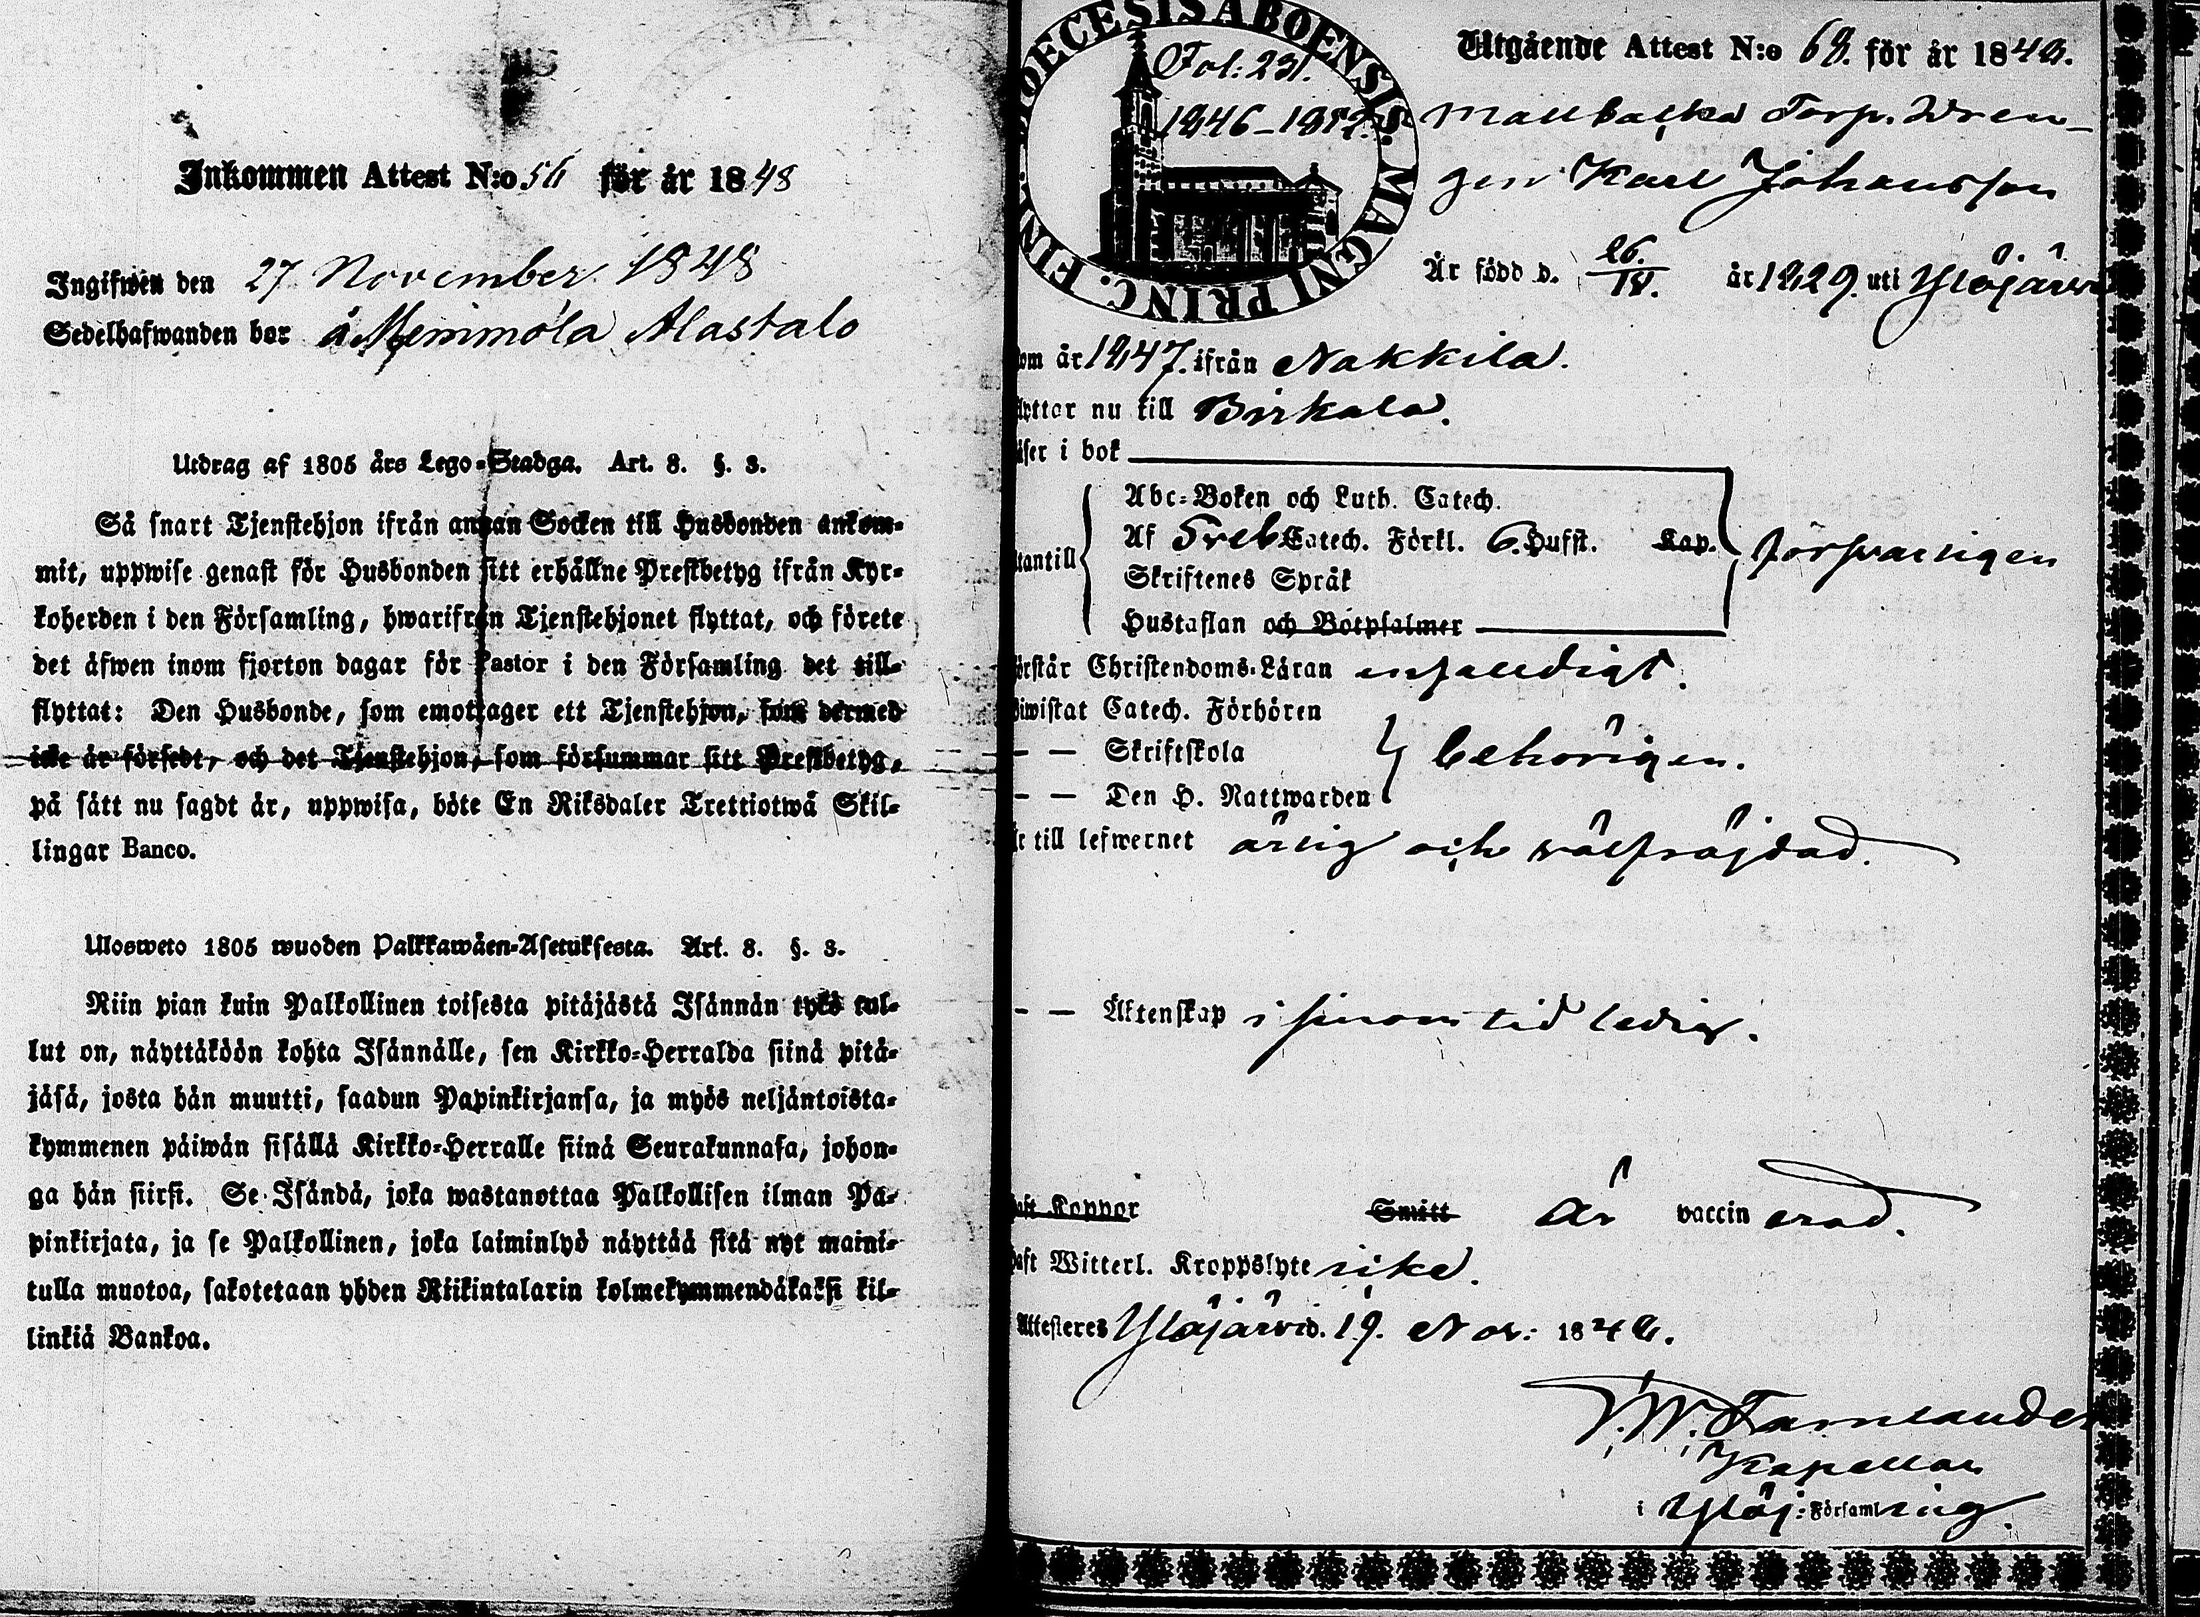 Inkommen Attest N:o 56 för år 1848
Ingifwen den 27 November 1848
Sedelhafwanden bor å Alastalo
Utdrag af 1805 års Lego-Stadga. Art. 8. §. 3.
Så snart Tjenstehjon ifrån annan Socken till Husbonden ankom-
mit, uppwise genast för Husbonden sitt erhållne Prestbetyg ifrån Kyr-
koherden i den Församling, hwarifrån Tjenstehjonet flyttat, och förete
det äfwen inom fjorton dagar för Pastor i den Församling det till-
flyttat: Den Husbonde, som emottager ett Tjenstehjon, som dermed
icke är försedt, och det Tjenstehjon, som försummar sitt Prestbetyg,
på sätt nu sagdt är, uppwisa, böte En Riksdaler Trettiotwå Skil-
lingar Banco.
Ulosweto 1805 wuoden Palkkawäen-Asetuksesta. Art. 8. §. 3.
Niin pian kuin Palkollinen toisesta pitäjästä Isännän tykö tul-
lut on, näyttäköön kohta Isännälle, sen Kirkko-Herralda siinä pitä-
jäsä, josta hän muutti, saadun Papinkirjansa, ja myös neljäntoista-
kymmenen päiwän sisällä Kirkko-Herralle siinä Seurakunnasa, johon-
ga hän siirsi. Se Isändä, joka wastanottaa Palkollisen ilman Pa-
pinkirjata, ja se Palkollinen, joka laiminlyö näyttää sitä nyt maini-
tulla muotoa, sakotetaan yhden Riikintalarin kolmekymmendäkaksi kil-
linkiä Bankoa.
DIOECESIS ABOENSIS. MAGNI PRINC. FINL.
Fol: 231.
1846-1852.
Utgående Attest N:o 68. för år 1848.
Torp. Dren-
gen Karl Johansson
Är född d. 26./IV. år 1829. uti Ylöjärvi
om år 1847. ifrån Nakkila.
lyttar nu till Birkala.
äser i bok
Abc-Boken och Luth. Catech.
tantill Af Sveb Catech. Förkl. 6. Hufst. Kap. försvarligen
Skriftenes Språk
Hustaflan och Botpsalmer
örstår Christendoms-Läran enfaldigt.
iwistat Catech. Förhören
— — Skriftskola behörigen.
— — Den H. Nattwarden
är till lefwernet ärlig och wälfräjdad.
— — Äktenskap i sinom tid ledig.
aft Koppor Smitt är vaccinerad.
aft Witterl. Kroppslyte icke.
Attesteres Ylöjärvi d. 19. Nov: 1848.
Kapellan
i Ylöj: Församling.